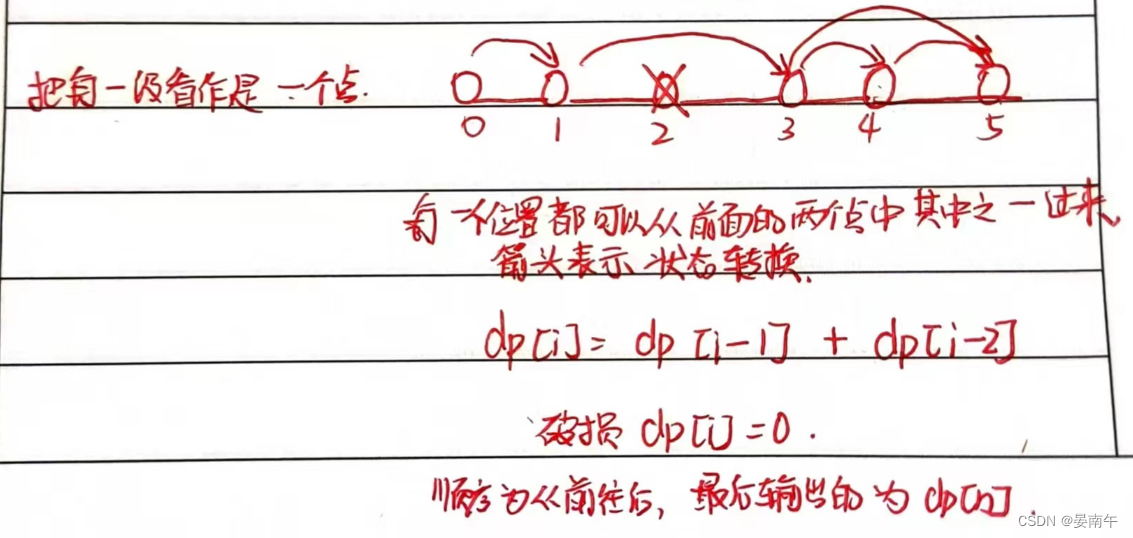 把每一级看作是一个点.
0 1 2 3 4 5
每一个位置都可以从前面的两个点中其中之一过来,
箭头表示状态转换.
dp[i]= dp[i-1] + dp[i-2]
破损 dp[i]=0.
顺序为从前往后, 最后输出的为 dp[n].
CSDN @晏南午